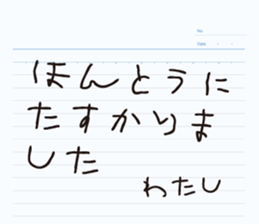 No.
Date
ほんとうに
たすかりま
した
わたし